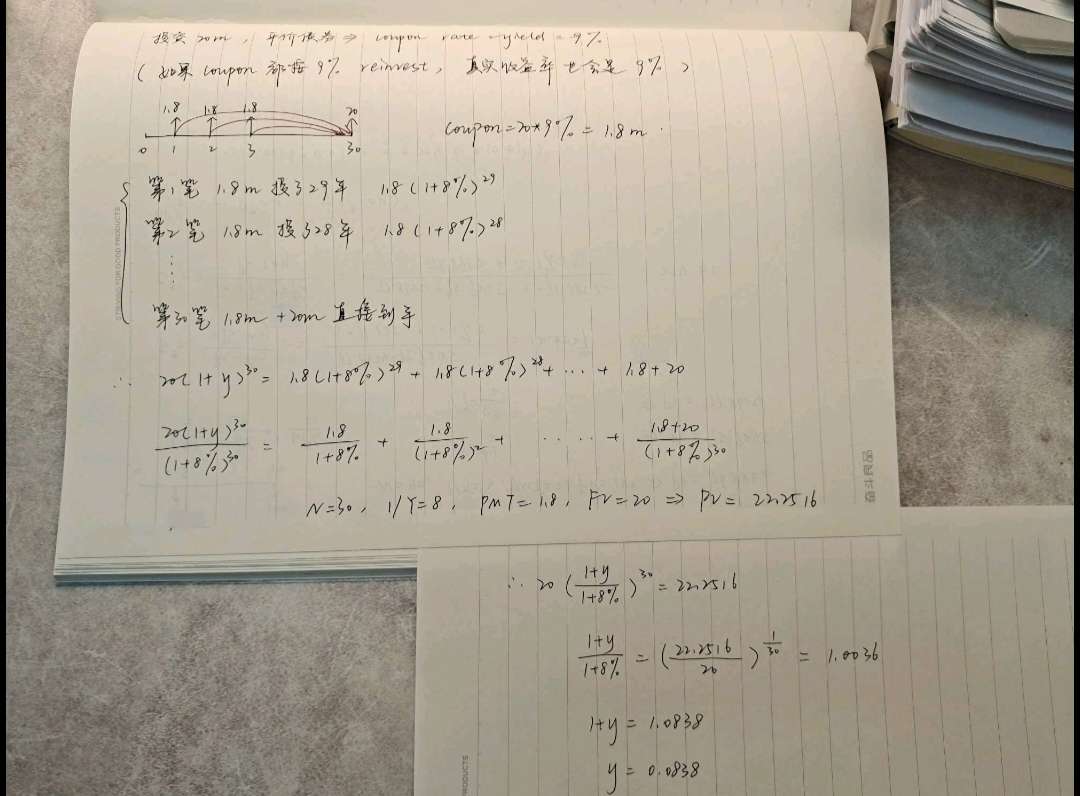 投资 20m, 平价债券 ⇒ coupon rate = yield = 9%
( 如果 coupon 都按 9% reinvest, 真实收益率也会是 9% )
1.8 1.8 1.8 20
0 1 2 3 30
coupon = 20*9% = 1.8m
第1笔 1.8m 投了29年 1.8(1+8%)^29
第2笔 1.8m 投了28年 1.8(1+8%)^28
⋮
第30笔 1.8m +20m 直接到手
∴ 20(1+y)^30 = 1.8(1+8%)^29 + 1.8(1+8%)^28 + ... + 1.8+20
20(1+y)^30/(1+8%)^30 = 1.8/(1+8%) + 1.8/(1+8%)^2 + ..... + (1.8+20)/(1+8%)^30
N=30, I/Y=8, PMT=1.8, FV=20 ⇒ PV= 22.2516
∴ 20 ((1+y)/(1+8%))^30 = 22.2516
(1+y)/(1+8%) = (22.2516/20)^(1/30) = 1.0036
1+y = 1.0838
y = 0.0838
GOOD PRODUCTS
PRODUCTS